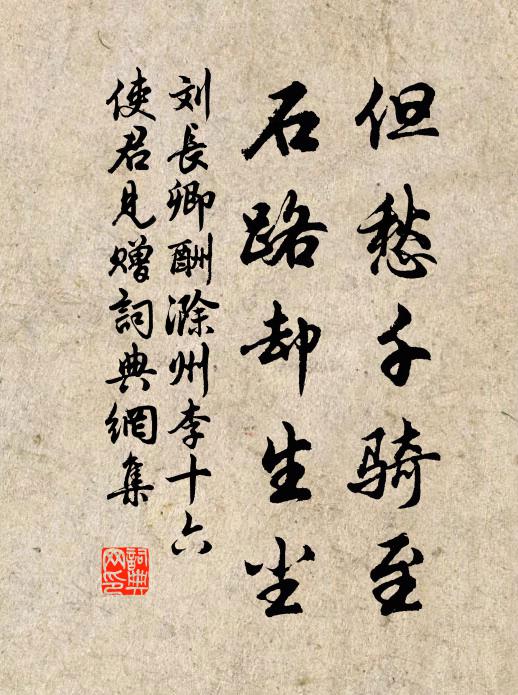 但愁千骑至
石路却生尘
刘長卿酬滁州李十六
使君見赠詞典網集
詞典网印